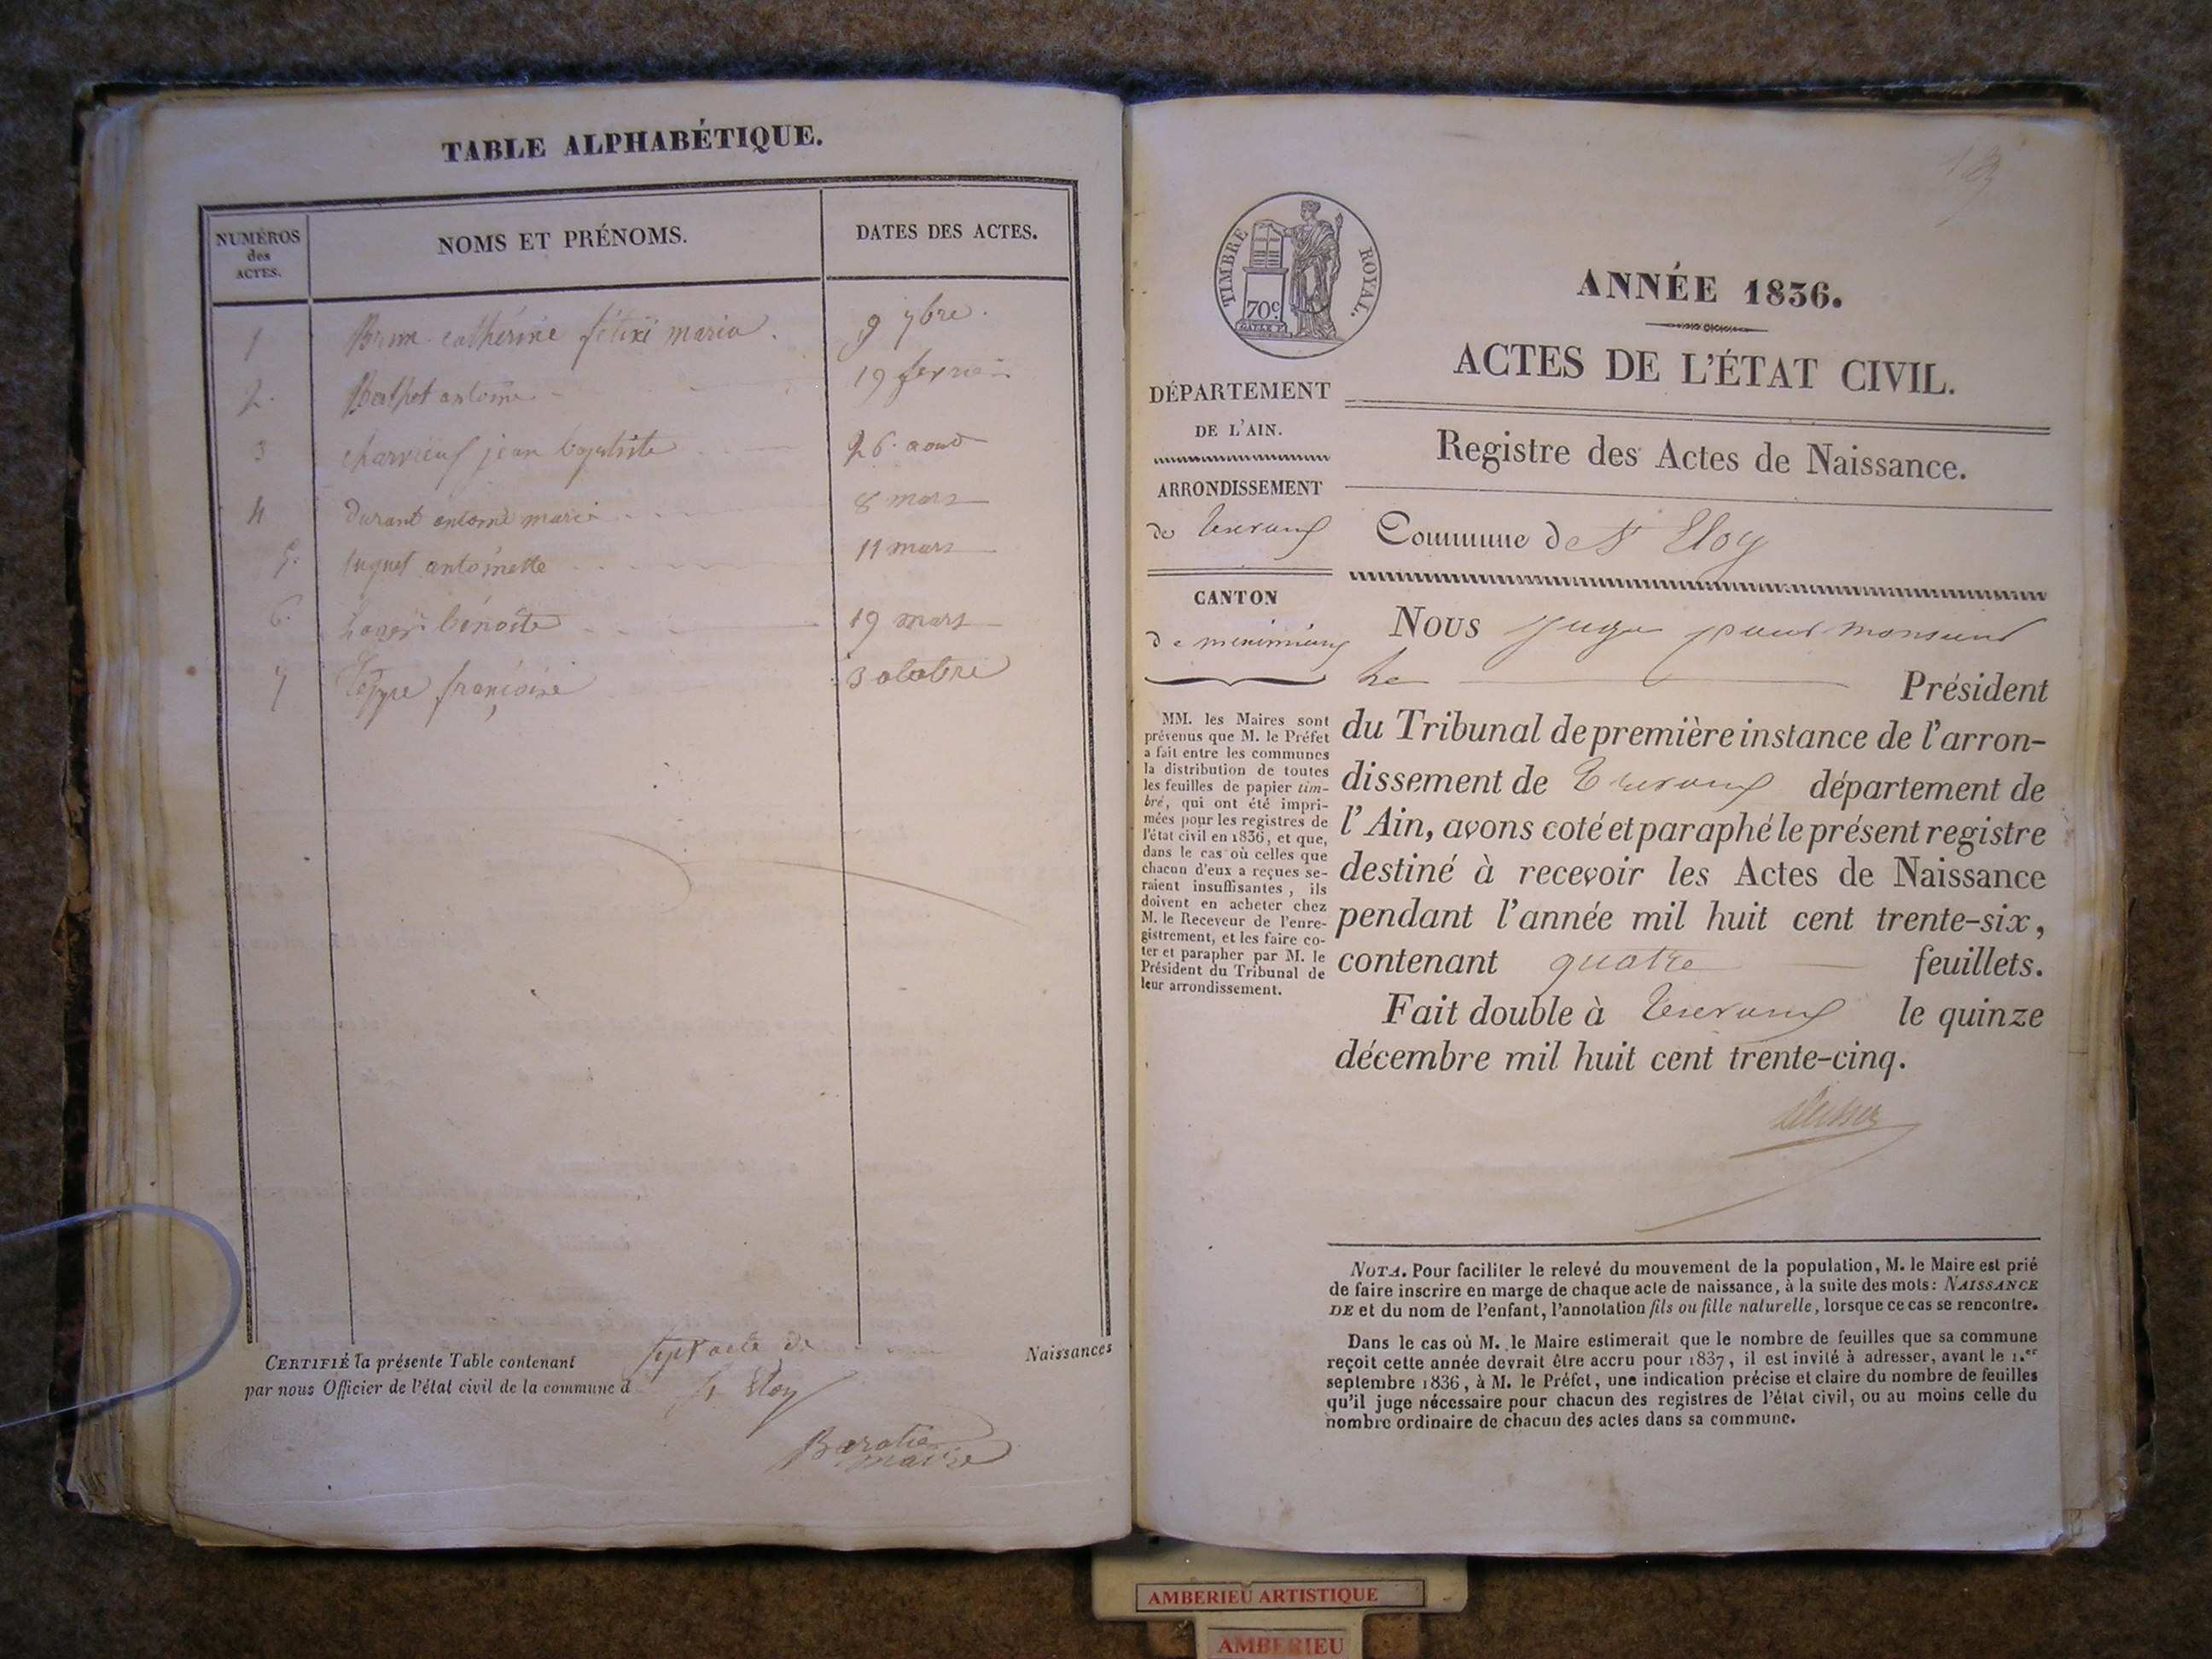 TABLE ALPHABÉTIQUE.
NUMÉROS
des
ACTES.
NOMS ET PRÉNOMS.
DATES DES ACTES.
1 Brun catherine maria. 9 7bre.
2. antoine 19 fevrier
3 jean baptiste 26 aout
4 Durand antoine marie 8 mars
5. antoinette 11 mars
6. benoite 19 mars
7 françoise 3 octobre
CERTIFIÉ la présente Table contenant sept acte de Naissances
par nous Officier de l'état civil de la commune d St Eloy
Baratier
maire
TIMBRE ROYAL.
70c.
DÉPARTEMENT
DE L'AIN.
ARRONDISSEMENT
de Trevoux
CANTON
de meximieux
MM. les Maires sont
prévenus que M. le Préfet
a fait entre les communes
la distribution de toutes
les feuilles de papier tim-
bré, qui ont été impri-
mées pour les registres de
l'état civil en 1836, et que,
dans le cas où celles que
chacun d'eux a reçues se-
raient insuffisantes, ils
doivent en acheter chez
M. le Receveur de l'enre-
gistrement, et les faire co-
ter et parapher par M. le
Président du Tribunal de
leur arrondissement.
ANNÉE 1836.
ACTES DE L'ÉTAT CIVIL.
Registre des Actes de Naissance.
Commune de St Eloy
Nous Juge pour monsieur
Le Président
du Tribunal de première instance de l'arron-
dissement de Trevoux département de
l'Ain, avons coté et paraphé le présent registre
destiné à recevoir les Actes de Naissance
pendant l'année mil huit cent trente-six,
contenant quatre feuillets.
Fait double à Trevoux le quinze
décembre mil huit cent trente-cinq.
NOTA. Pour faciliter le relevé du mouvement de la population, M. le Maire est prié
de faire inscrire en marge de chaque acte de naissance, à la suite des mots: NAISSANCE
DE et du nom de l'enfant, l'annotation fils ou fille naturelle, lorsque ce cas se rencontre.
Dans le cas où M. le Maire estimerait que le nombre de feuilles que sa commune
reçoit cette année devrait être accru pour 1837, il est invité à adresser, avant le 1.er
septembre 1836, à M. le Préfet, une indication précise et claire du nombre de feuilles
qu'il juge nécessaire pour chacun des registres de l'état civil, ou au moins celle du
nombre ordinaire de chacun des actes dans sa commune.
AMBERIEU ARTISTIQUE
AMBERIEU